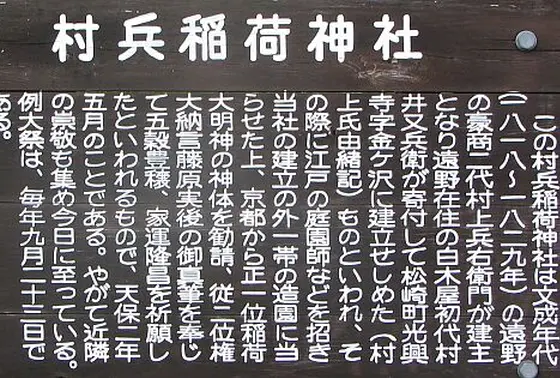 村兵稲荷神社
この村兵稲荷神社は文成年代
(一八一八〜一八二九年)の遠野
の豪商二代村上兵右衛門が建主
となり遠野在住の白木屋初代村
井又兵衛が寄付して松崎町光興
寺字金ケ沢に建立せしめた(村
上氏由緒記)ものといわれ、そ
の際に江戸の庭園師などを招き
当社の建立の外一帯の造園に当
らせた上、京都から正一位稲荷
大明神の神体を勧請、従二位権
大納言藤原実後の御真筆を奉じ
て五穀豊穣、家運隆昌を祈願し
たといわれるもので、天保二年
五月のことである。やがて近隣
の崇敬も集め今日に至っている。
例大祭は、毎年九月二十二日で
ある。